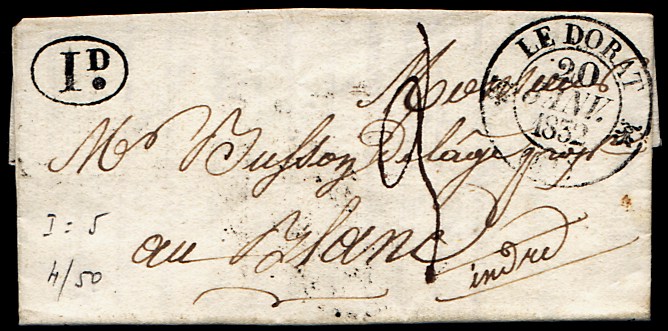 1D.
LE DORAT
20
JANV.
1832
Monsieur
Mr Busson Delâge
au Blanc
indre
I = 5
4/50